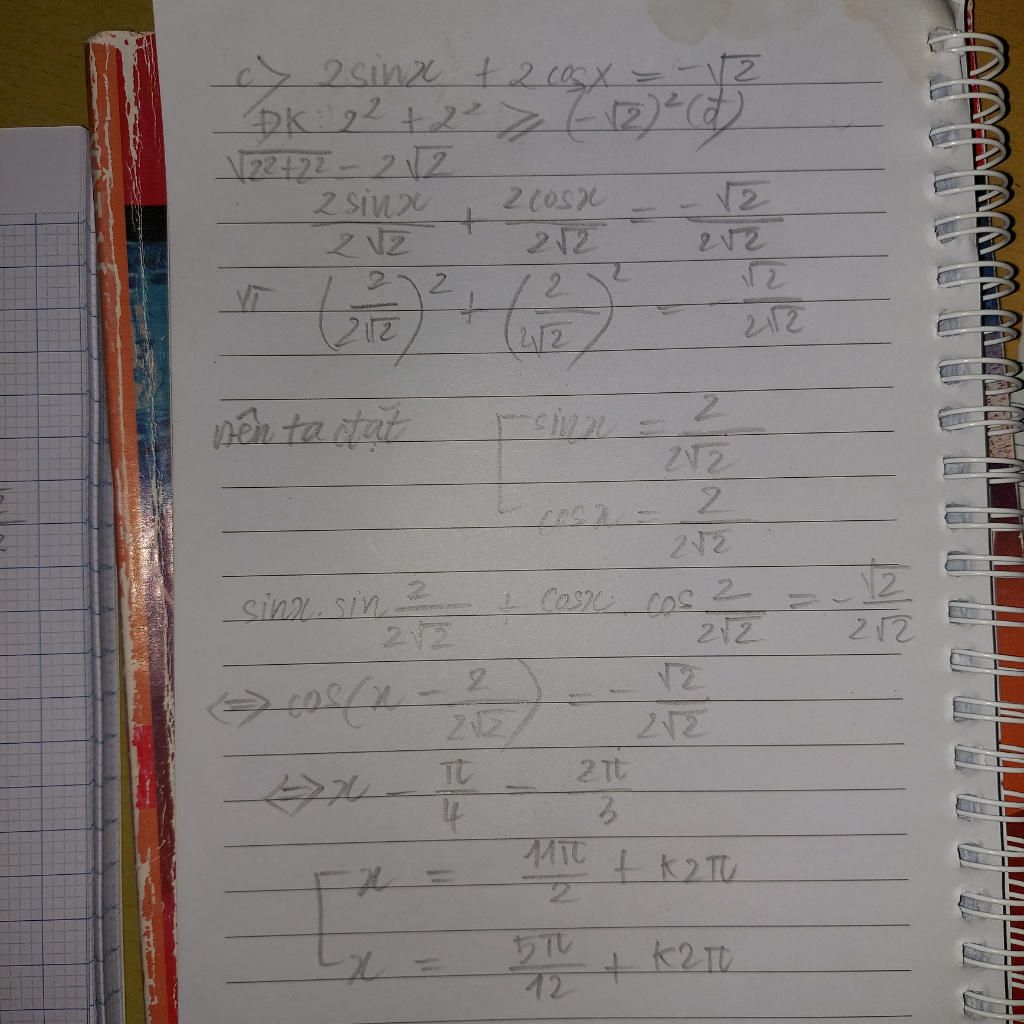 c> 2sinx + 2cosx = -√2
ĐK: 2² + 2² ⩾ (-√2)² (đ)
√2²+2² = 2√2
2sinx/2√2 + 2cosx/2√2 = -√2/2√2
Vì (2/2√2)² + (2/2√2)² = -√2/2√2
nên ta đặt [ sinx = 2/2√2
cosx = 2/2√2
sinx.sin 2/2√2 + cosx.cos 2/2√2 = -√2/2√2
⇔ cos(x - 2/2√2) = -√2/2√2
⇔ x - π/4 = 2π/3
[ x = 11π/2 + k2π
x = 5π/12 + k2π